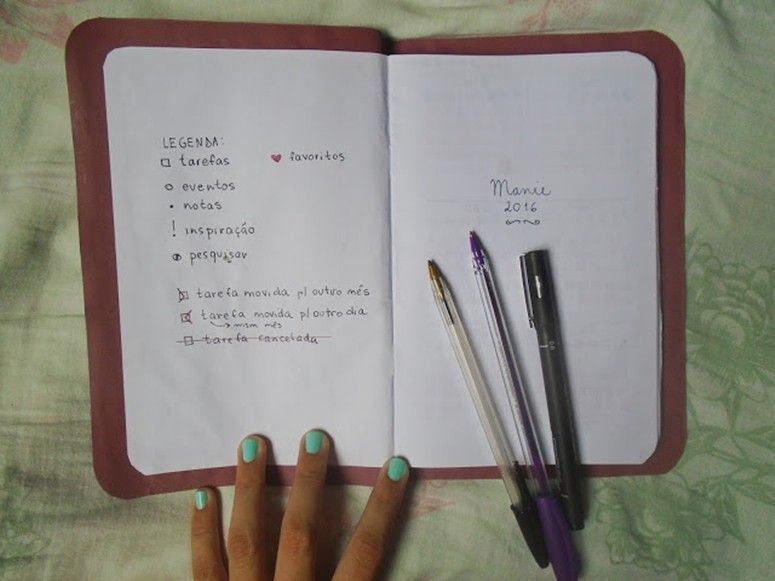 LEGENDA:
tarefas
favoritos
eventos
notas
! inspiração
pesquisar
tarefa movida p/ outro mês
tarefa movida p/ outro dia
mesm mês
tarefa cancelada
Manie
2016